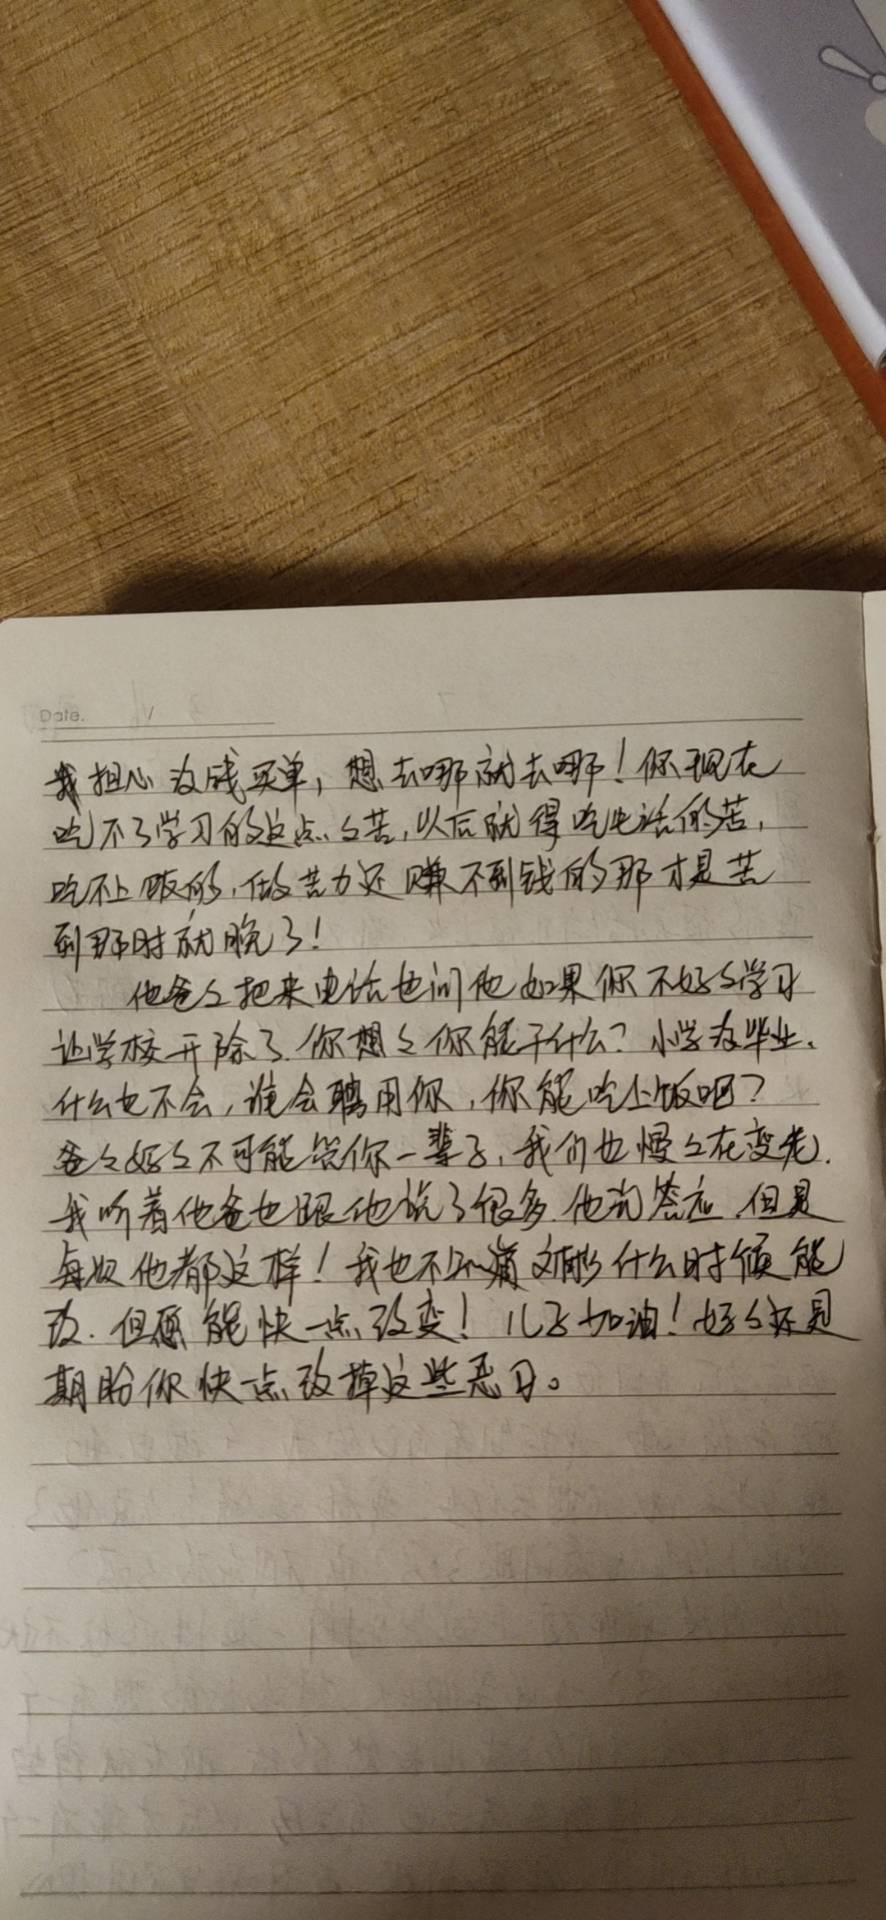 Date.
我担心没钱买单，想去哪就去哪！你现在
吃不了学习的这点々苦，以后就得吃生活的苦，
吃不上饭的，做苦力还赚不到钱的那才是苦
到那时就晚了！
他爸々把来电话也问他如果你不好々学习
让学校开除了.你想々你能干什么？小学没毕业.
什么也不会，谁会聘用你，你能吃上饭吧？
爸々妈々不可能管你一辈子，我们也慢々在变老.
我听着他爸也跟他说了很多.他光答应.但是
每次他都这样！我也不知道 什么时候能
改.但愿能快一点改变！儿子加油！妈々还是
期盼你快一点改掉这些恶习。